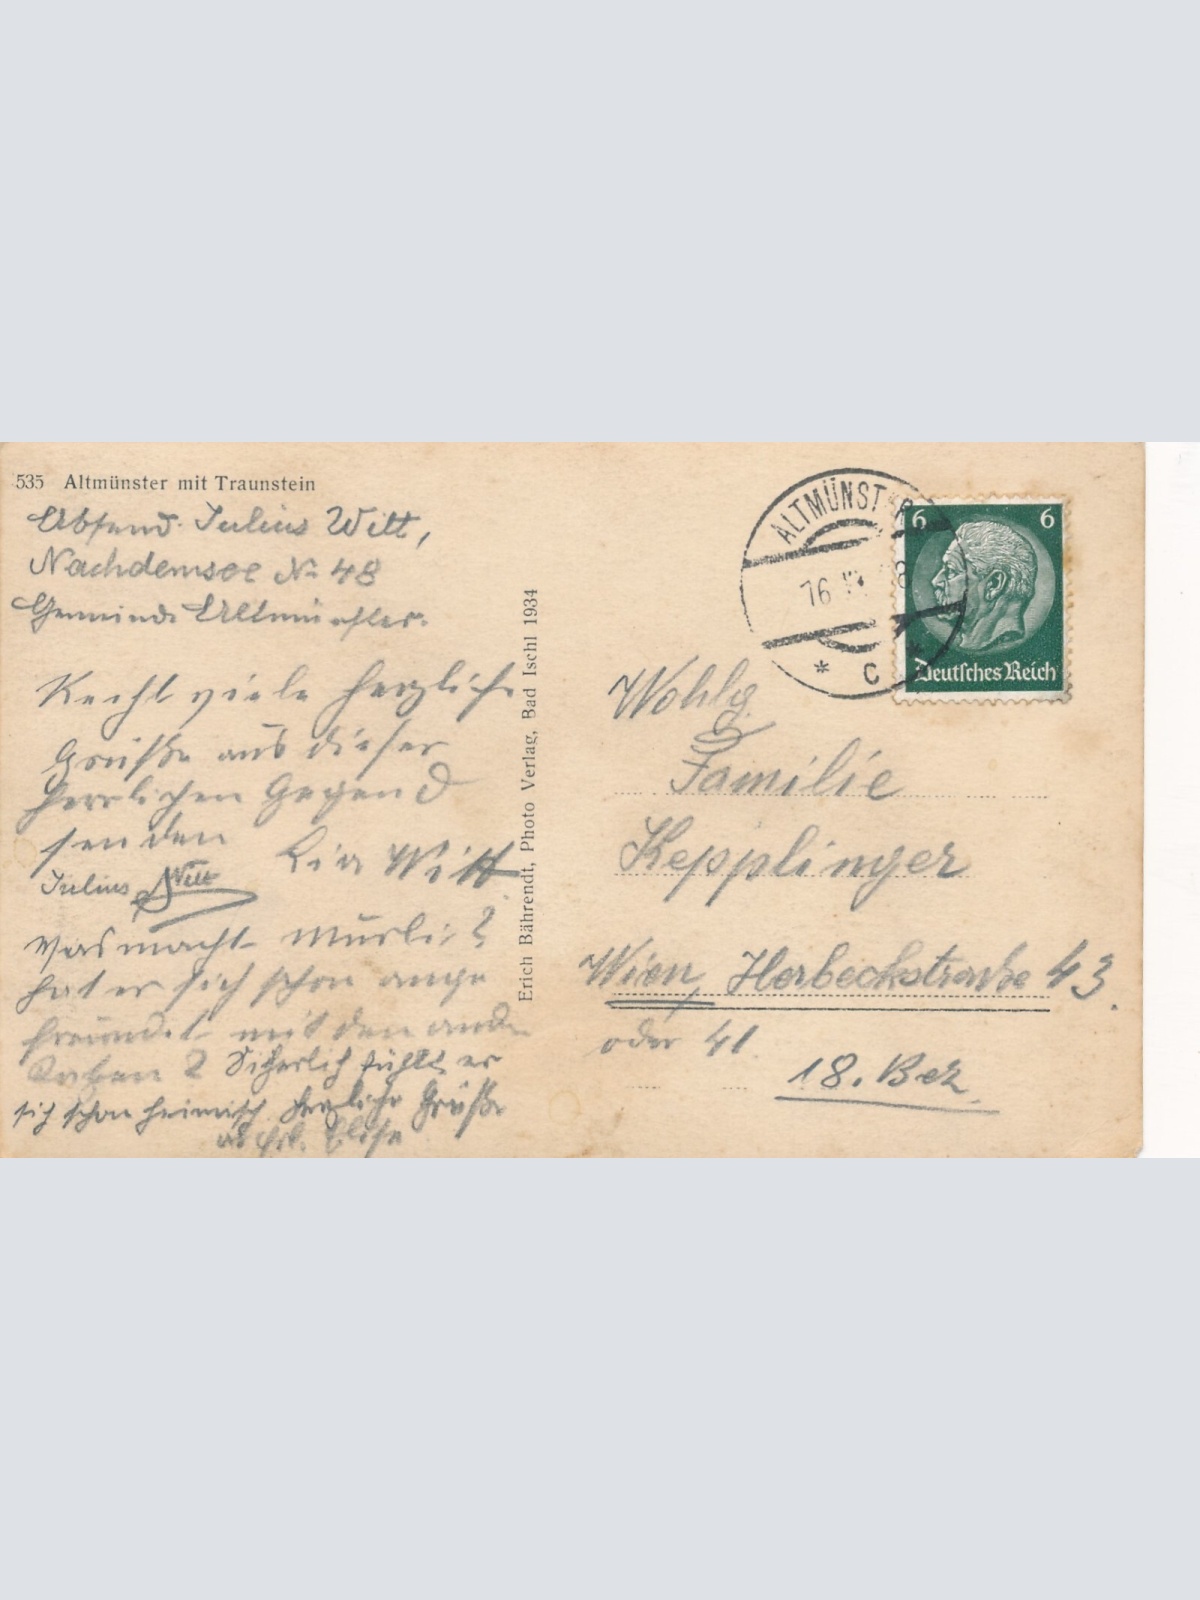 535 Altmünster mit Traunstein
Absend. Julius Witt,
Nachdemsee No 48
Gemeinde Altmünster.
Recht viele herzliche
Grüße aus dieser
herrlichen Gegend
senden
Lia Witt
Julius Witt
Was macht Murli?
hat er sich schon ange
freundet mit den andn
Katzen? Sicherlich fühlt er
sich schon heimisch. Herzliche Grüße
Elise
Erich Bährendt, Photo Verlag, Bad Ischl 1934
ALTMÜNSTER
16
* C *
6 6
Deutsches Reich
Wohlg.
Familie
Kepplinger
Wien, Herbeckstraße 43.
oder 41
18. Bez.